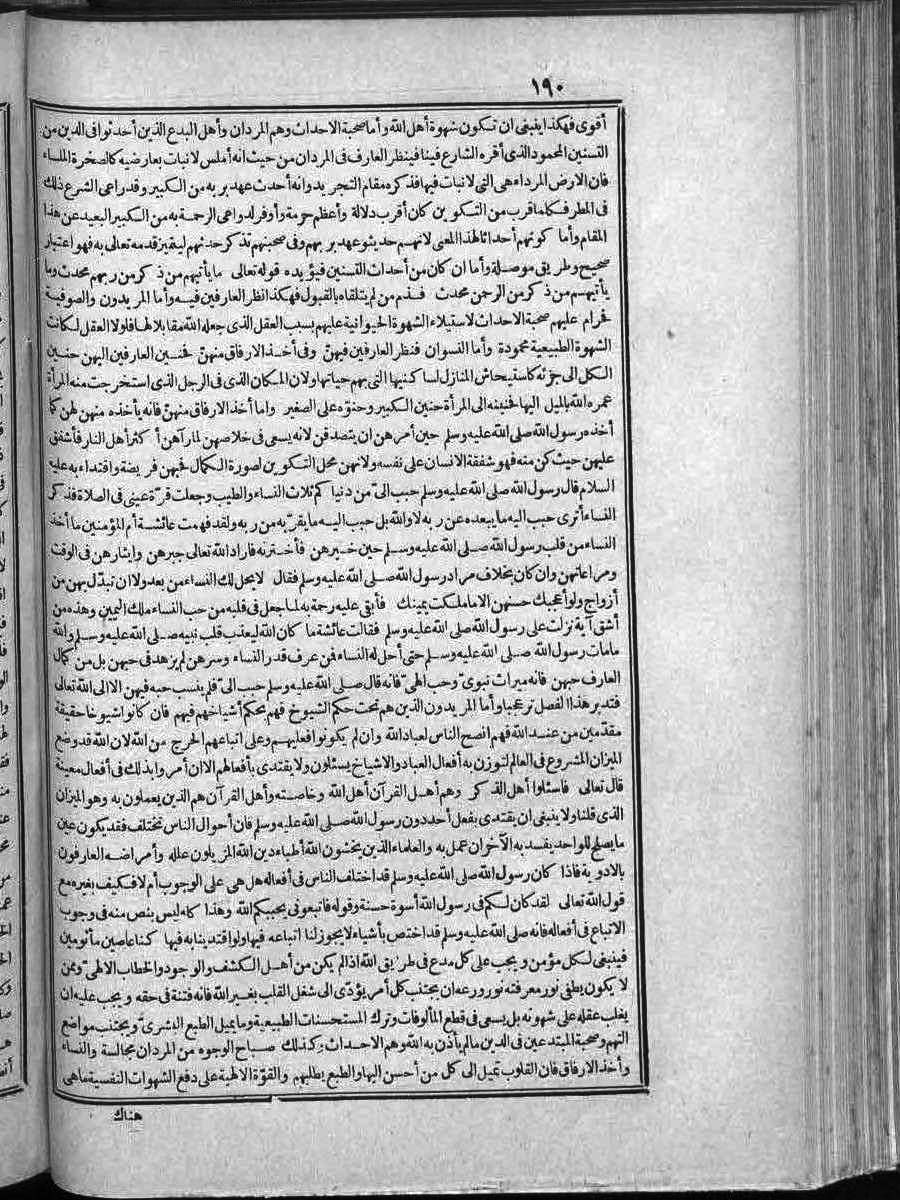 ١٩٠
أقوى فهكذا ينبغى ان تكون شهوة أهل الله وأما صحبة الاحداث وهم المردان وأهل البدع الذين أحدثوا فى الدين من
التسنين المحمود الذى أقره الشارع فينا فينظر العارف فى المردان من حيث انه أملس لا نبات بعارضيه كالصخرة الملساء
فان الارض المرداء هى التى لا نبات فيها فذكره مقام التجريد وانه أحدث عهد بربه من الكبير وقد راعى الشرع ذلك
فى المطر فكلما قرب من التكوين كان أقرب دلالة وأعظم حرمة وأوفر لدواعى الرحمة به من الكبير البعيد عن هذا
المقام وأما كونهم أحداثا لهذا المعنى لانهم حديثو عهد بربهم وفى صحبتهم تذكر حدثهم ليتميز قدمه تعالى به فهو اعتبار
صحيح وطريق موصلة وأما ان كان من أحداث التسنين فيؤيده قوله تعالى ما يأتيهم من ذكر من ربهم محدث وما
يأتيهم من ذكر من الرحمن محدث فذم من لم يتلقاه بالقبول فهكذا نظر العارفين فيه وأما المريدون والصوفية
فحرام عليهم صحبة الاحداث لاستيلاء الشهوة الحيوانية عليهم بسبب العقل الذى جعله الله مقابلا لها فلولا العقل لكانت
الشهوة الطبيعية محمودة وأما النسوان فنظر العارفين فيهنّ وفى أخذ الارفاق منهنّ فحنين العارفين اليهن حنين
الكل الى جزئه كاستيحاش المنازل لساكنيها التى بهم حياتها ولان المكان الذى فى الرجل الذى استخرجت منه المرأة
عمره الله بالميل اليها فحنينه الى المرأة حنين الكبير وحنوّه على الصغير واما أخذ الارفاق منهنّ فانه يأخذه منهن لهن كما
أخذه رسول الله صلى الله عليه وسلم حين أمرهن ان يتصدقن لانه يسعى فى خلاصهن لما رآهن أكثر أهل النار فأشفق
عليهن حيث كن منه فهو شفقة الانسان على نفسه ولانهن محل التكوين لصورة الكمال فحبهن فريضة واقتداء به عليه
السلام قال رسول الله صلى الله عليه وسلم حبب الىّ من دنياكم ثلاث النساء والطيب وجعلت قرّة عينى فى الصلاة فذكر
النساء أترى حبب اليه ما يبعده عن ربه لا والله بل حبب اليه ما يقرّبه من ربه ولقد فهمت عائشة أم المؤمنين ما أخذ
النساء من قلب رسول الله صلى الله عليه وسلم حين خيرهن فأخترنه فاراد الله تعالى جبرهن وايثارهن فى الوقت
ومراعاتهن وان كان بخلاف مراد رسول الله صلى الله عليه وسلم فقال لا يحل لك النساء من بعد ولا ان تبدّل بهن من
أزواج ولو أعجبك حسنهن الا ما ملكت يمينك فأبقى عليه رحمة به لما جعل فى قلبه من حب النساء ملك اليمين وهذه من
أشق آية نزلت على رسول الله صلى الله عليه وسلم فقالت عائشة ما كان الله ليعذب قلب نبيه صلى الله عليه وسلم والله
ما مات رسول الله صلى الله عليه وسلم حتى أحل له النساء فمن عرف قدر النساء وسرهن لم يزهد فى حبهن بل من كمال
العارف حبهن فانه ميراث نبوىّ وحب الهىّ فانه قال صلى الله عليه وسلم حبب الىّ فلم ينسب حبه فيهن الا الى الله تعالى
فتدبر هذا الفصل تر عجبا وأما المريدون الذين هم تحت حكم الشيوخ فهم بحكم أشياخهم فيهم فان كانوا شيوخا حقيقة
مقدّمين من عند الله فهم انصح الناس لعباد الله وان لم يكونوا فعليهم وعلى اتباعهم الحرج من الله لان الله قد وضع
الميزان المشروع فى العالم لتوزن به أفعال العباد والاشياخ يسئلون ولا يقتدى بأفعالهم الا ان أمروا بذلك فى أفعال معينة
قال تعالى فاسئلوا أهل الذكر وهم أهل القرآن أهل الله وخاصته وأهل القرآن هم الذين يعملون به وهو الميزان
الذى قلنا ولا ينبغى ان يقتدى بفعل أحد دون رسول الله صلى الله عليه وسلم فان أحوال الناس تختلف فقد يكون عين
ما يصلح للواحد يفسد به الآخر ان عمل به والعلماء الذين يخشون الله أطباء دين الله المزيلون علله وأمراضه العارفون
بالادوية فاذا كان رسول الله صلى الله عليه وسلم قد اختلف الناس فى أفعاله هل هى على الوجوب أم لا فكيف بغيره مع
قول الله تعالى لقد كان لكم فى رسول الله أسوة حسنة وقوله فاتبعونى يحببكم الله وهذا كله ليس بنص منه فى وجوب
الاتباع فى أفعاله فانه صلى الله عليه وسلم قد اختص بأشياء لا يجوز لنا اتباعه فيها ولو اقتدينا به فيها كنا عاصين مأثومين
فينبغى لكل مؤمن ويجب على كل مدع فى طريق الله اذا لم يكن من أهل الكشف والوجود والخطاب الالهىّ وممن
لا يكون يطفى نور معرفته نور ورعه ان يجتنب كل أمر يؤدّى الى شغل القلب بغير الله فانه فتنة فى حقه ويجب عليه ان
يغلب عقله على شهوته بل يسعى فى قطع المألوفات وترك المستحسنات الطبيعية وما يميل الطبع البشرىّ ويجتنب مواضع
التهم وصحبة المبتدعين فى الدين ما لم يأذن به الله وهم الاحداث وكذلك صباح الوجوه من المردان مجالسة والنساء
وأخذ الارفاق فان القلوب تميل الى كل من أحسن اليها والطبع يطلبهم والقوّة الالهية على دفع الشهوات النفسية ما هى
هناك